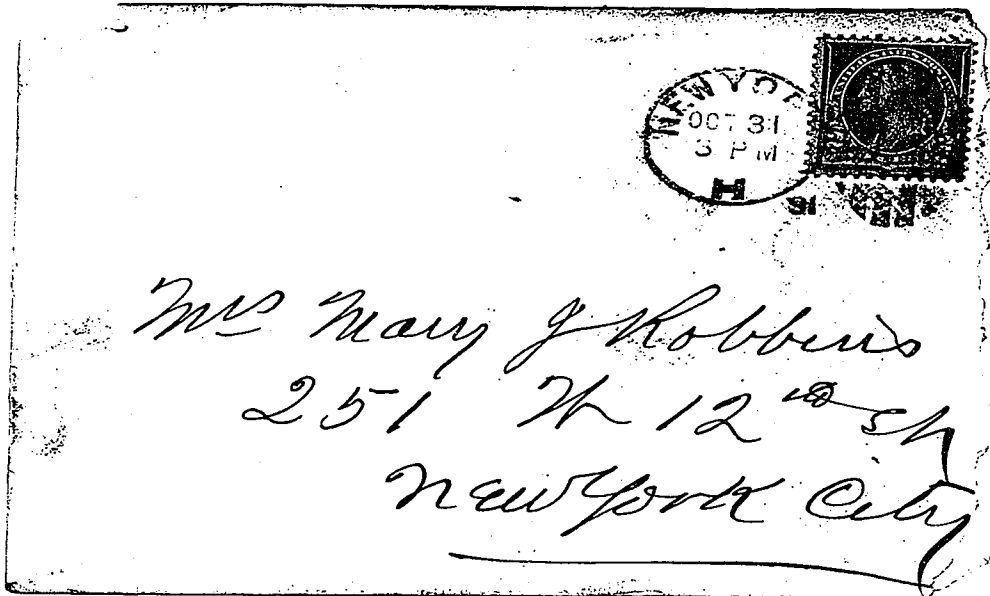 NEW YOR
OCT 31
3 PM
H
91
Mrs Mary J Robbins
251 W 12th St
New York City